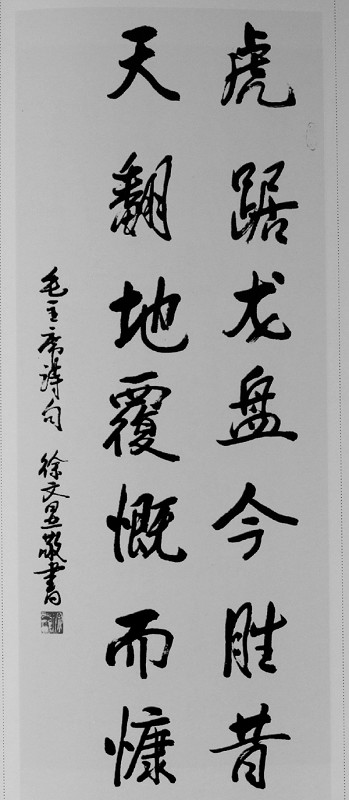 虎踞龙盘今胜昔
天翻地覆慨而慷
毛主席詩句 徐文敬書